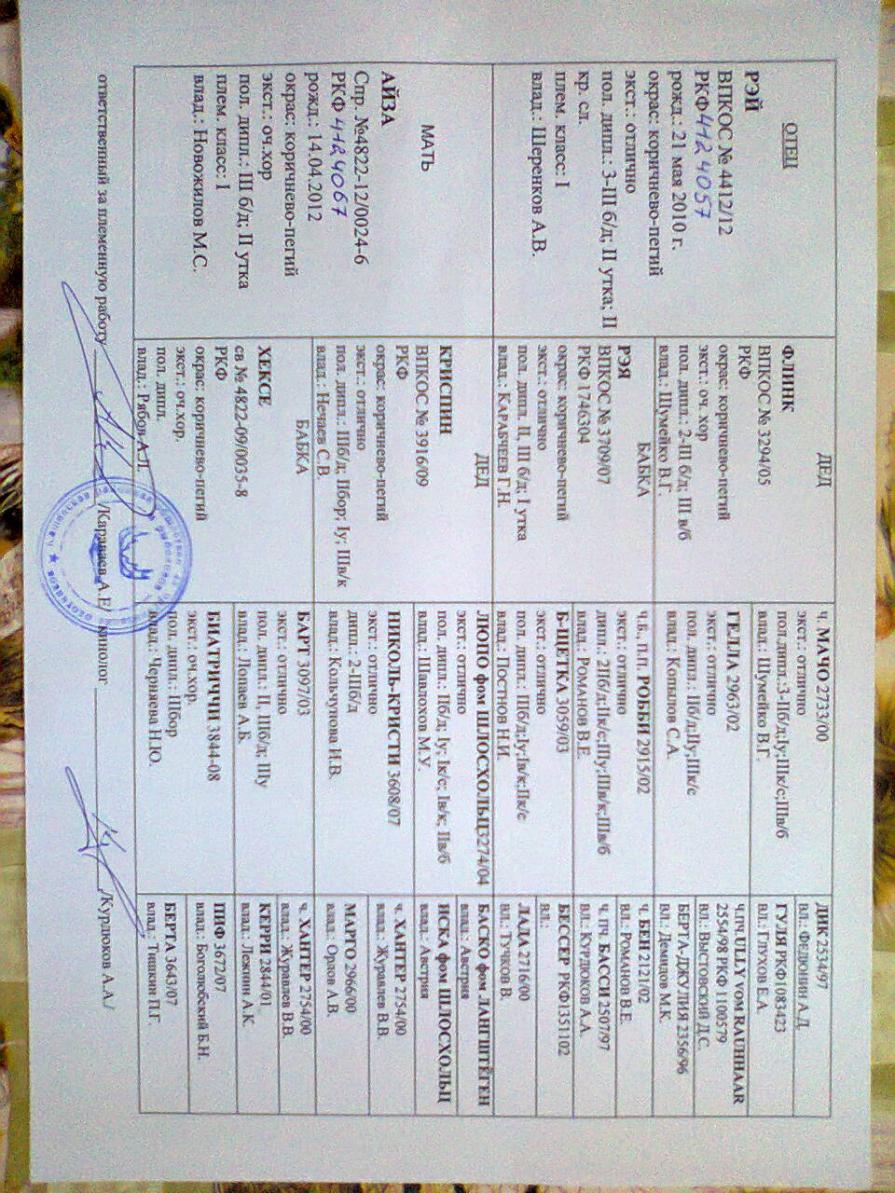 ОТЕЦ
РЭЙ
ВПКОС № 4412/12
РКФ 4124057
рожд.: 21 мая 2010 г.
окрас: коричнево-пегий
экст.: отлично
пол. дипл.: 3-III б/д; II утка; II
кр. сл.
плем. класс: I
влад.: Шеренков А.В.
МАТЬ
АЙЗА
Спр. №4822-12/0024-6
РКФ 4124067
рожд.: 14.04.2012
окрас: коричнево-пегий
экст.: оч.хор
пол. дипл.: III б/д; II утка
плем. класс: I
влад.: Новожилов М.С.
ДЕД
ФЛИНК
ВПКОС № 3294/05
РКФ
окрас: коричнево-пегий
экст.: оч. хор
пол. дипл.: 2-III б/д; III в/б
влад.: Шумейко В.Г.
БАБКА
РЭЯ
ВПКОС № 3709/07
РКФ 1746304
окрас: коричнево-пегий
экст.: отлично
пол. дипл. II, III б/д; I утка
влад.: КАРАБЧЕЕВ Г.Н.
ДЕД
КРИСПИН
ВПКОС № 3916/09
РКФ
окрас: коричнево-пегий
экст.: отлично
пол. дипл.: IIIб/д; IIбор; Iу; IIIв/к
влад.: Нечаев С.В.
БАБКА
ХЕКСЕ
св № 4822-09/0035-8
РКФ
окрас: коричнево-пегий
экст.: оч.хор.
пол. дипл.
влад.: Рябов А.Л.
ч. МАЧО 2733/00
экст.: отлично
пол.дипл.:3-IIб/д;Iу;IIIк/с;IIIв/б
влад.: Шумейко В.Г.
ГЕЛЛА 2963/02
экст.: отлично
пол. дипл.: IIб/д;IIу;IIIк/с
влад.: Копылов С.А.
ч.в., п.п. РОББИ 2915/02
экст.: отлично
дипл.: 2IIб/д;IIк/с;IIIу;IIIв/к;IIIв/б
влад.: Романов В.Е.
Б-ЩЕТКА 3059/03
экст.: отлично
пол. дипл.: IIIб/д;Iу;Iв/к;IIк/с
влад.: Постнов Н.И.
ЛЮПО фом ШЛОСХОЛЬЦ3274/04
экст.: отлично
пол. дипл.: IIб/д; Iу; Iк/с; Iв/к; IIв/б
влад.: Шавлохов М.У.
НИКОЛЬ-КРИСТИ 3608/07
экст.: отлично
дипл.: 2-IIIб/д
влад.: Кольчунова И.В.
БАРТ 3097/03
экст.: отлично
пол. дипл.: II, IIIб/д; IIIу
влад.: Лопаев А.Б.
БИАТРИЧЧИ 3844-08
экст.: оч.хор.
пол. дипл.: IIIбор
влад.: Черняева Н.Ю.
ДИК 2534/97
вл.: Федюнин А.Д.
ГУЛЯ РКФ1083423
вл.: Глухов Е.А.
ч.пч.ULLY vom RAUHHAAR
2554/98 РКФ 1100579
влад.: Выстовский Д.С.
БЕРТА-ДЖУЛИЯ 2356/96
влад.: Демидов М.К.
ч. БЕН 2121/02
вл.: Романов В.Е.
ч. пч. БАССИ 2507/97
вл.: Курдюков А.А.
БЕССЕР РКФ1351102
вл.:
ЛАДА 2716/00
вл.: Тучков В.
БАСКО фом ЛАНГШТЁГЕН
влад.: Австрия
ИСКА фом ШЛОСХОЛЬЦ
влад.: Австрия
ч. ХАНТЕР 2754/00
влад.: Журавлев В.В.
МАРГО 2966/00
влад.: Орлов А.В.
ч. ХАНТЕР 2754/00
влад.: Журавлев В.В.
КЕРРИ 2844/01
влад.: Лежнин А.К.
ПИФ 3672/07
влад.: Боголюбский Б.Н.
БЕРТА 3643/07
влад.: Тишкин П.Г.
ответственный за племенную работу /Караваев А.Е/ кинолог /Курдюков А.А./